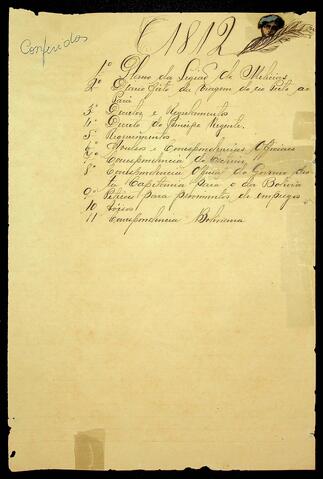 Conferidos
1812
1º Plano da Legião de Milicias
2º Diario feito da viagem do rio Preto ao
Pará
3º Decretos e Regulamentos
4º Decreto do Principe Regente.
5 Requerimentos
6º e Correspondencias Officiaes
7º Correspondencia do
8º Correspondencia Official do Governo des
ta Capitania para o da Bolivia
9º Petições para provimentos de empregos
10 Avisos
11 Correspondencia Boliviana